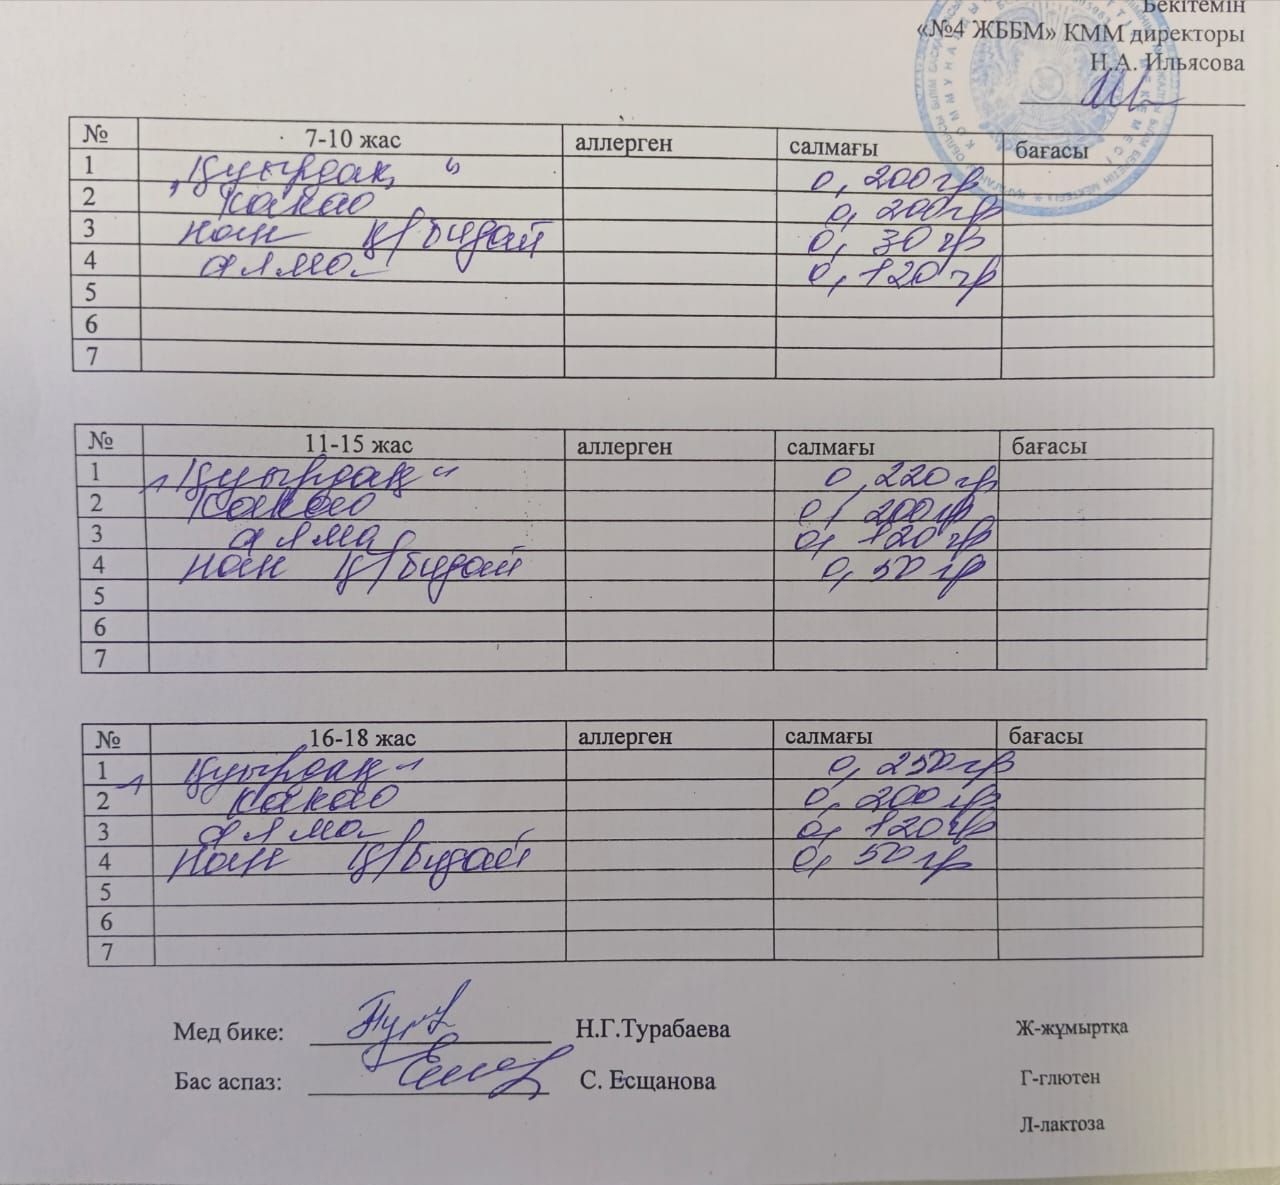 Бекітемін
«№4 ЖББМ» КММ директоры
Н.А. Ильясова
№ 7-10 жас аллерген салмағы бағасы
1 „Қуырдақ“ 0,200гр
2 какао 0,200гр
3 нан қ/бидай 0,30гр
4 алма 0,120гр
5
6
7
№ 11-15 жас аллерген салмағы бағасы
1 „Қуырдақ“ 0,220гр
2 какао 0,200гр
3 алма 0,120гр
4 нан қ/бидай 0,50гр
5
6
7
№ 16-18 жас аллерген салмағы бағасы
1 „Қуырдақ“ 0,250гр
2 какао 0,200гр
3 алма 0,120гр
4 нан қ/бидай 0,50гр
5
6
7
Мед бике: Н.Г.Турабаева Ж-жұмыртқа
Бас аспаз: С. Есщанова Г-глютен
Л-лактоза